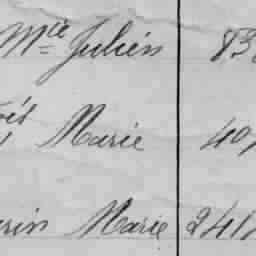 Mcie Julien 83
Marie 40
rin Marie 241